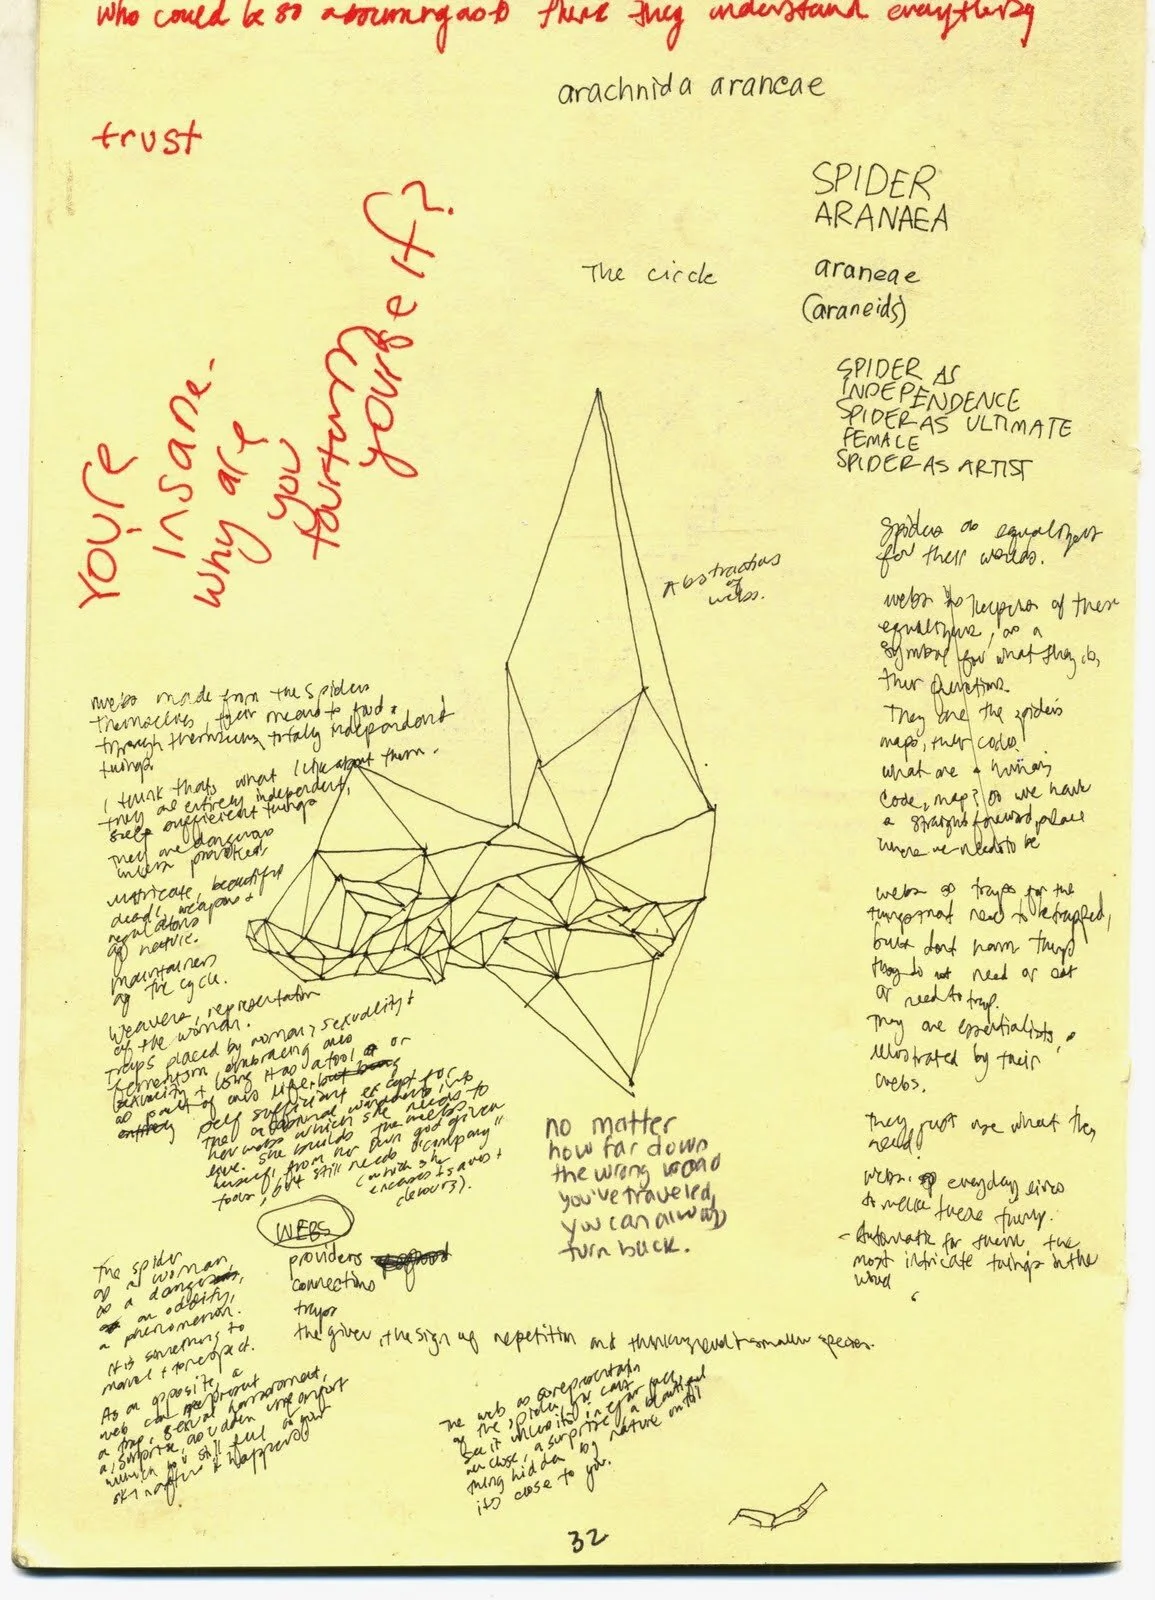 who could be so assuming as to think they understand everything
arachnida araneae
trust
SPIDER
ARANAEA
The circle
araneae
(araneids)
You're
insane.
why are
you
torturing
yourself?
SPIDER AS
INDEPENDENCE
SPIDER AS ULTIMATE
FEMALE
SPIDER AS ARTIST
Abstractions
of
webs.
spiders as equalizers
for their worlds.
webs as keepers of their
equalizing, as a
symbol for what they do,
their functions.
They are the spiders
maps, their codes.
what are a humans
code, map? Do we have
a straightforward place
where we needs to be
webs as traps for the
things that need to be trapped,
but dont harm things
they do not need or eat
or need to trap.
They are essentialists,
illustrated by their
webs.
They just use what they
need.
webs. everyday
to make these things.
- Automatic for them, the
most intricate things in the
world
webs made from the spiders
themselves, their means to food
through themselves, totally independent
things.
I think thats what I like about them.
they are entirely independent,
self sufficient things
They are dangerous
when provoked,
intricate, beautiful
deadly weapons +
regulations
of nature.
maintainers
of the cycle.
Weavers, representation
of the woman.
Traps placed by woman, sexuality +
feminism embracing ones
sexuality + using it as a tool or
as part of ones life
self sufficient except for
the occasional wanderer into
her webs which she needs to
live. she builds the webs
herself, from her own god given
tools, but still needs "company"
(which she
encases + saves +
devours).
WEBS
providers
connections
traps
the giver, the sign of repetition and
smaller species.
The spider
as a woman
as a danger,
an oddity,
a phenomenon.
it is something to
marvel + to respect.
As an opposite, a
web can represent
a trap, sexual harassment,
a surprise, a sudden
which you still feel on your
skin after it happens
The web as a representation
of the spider, you can't
see it unless it's in your face
up close, a surprise, a beautiful
thing hidden by nature until
its close to you.
no matter
how far down
the wrong road
you've traveled,
you can always
turn back.
32